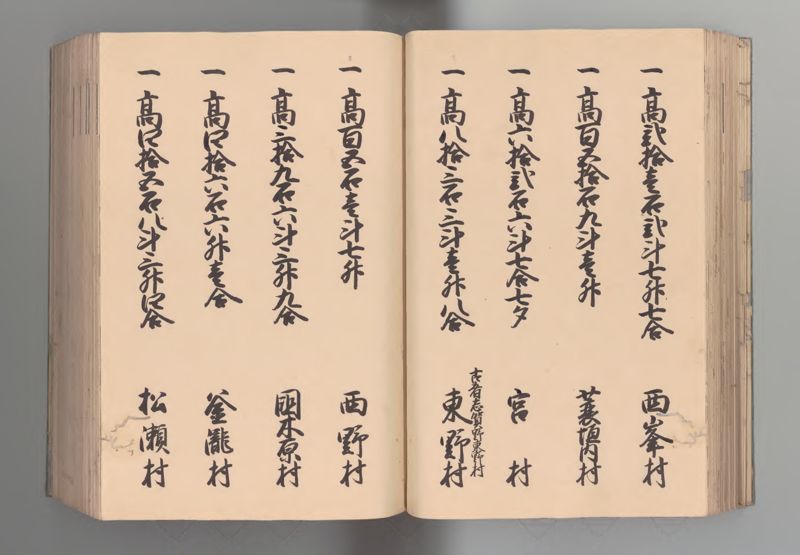 一高弐拾壱石弐斗七升七合 西峯村
一高百五拾石九斗壱升 蓑垣内村
一高六拾弐石六斗七合七夕 宮村
古者志賀野東野村
一高八拾三石三斗壱升八合 東野村
一高百五石壱斗七升 西野村
一高三拾九石六斗三升九合 国木原村
一高四拾六石六升壱合 釜滝村
一高四拾五石八斗三升四合 松瀬村